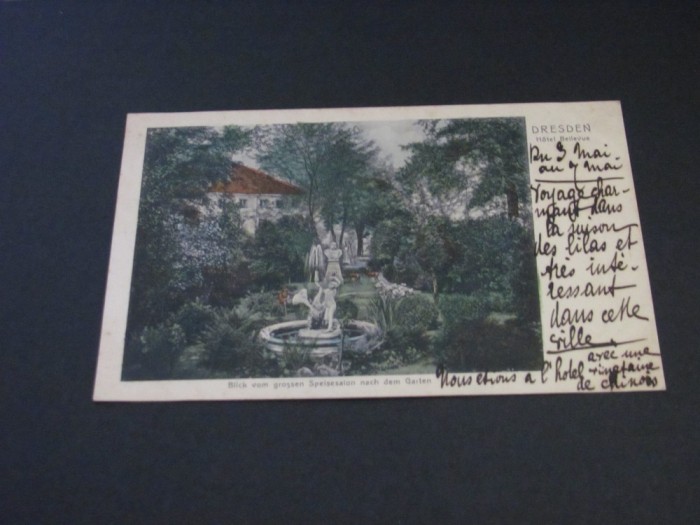 DRESDEN
Hôtel Bellevue
Du 3 Mai
au 7 Mai.
Voyage char-
mant dans
la saison
des lilas et
très inté-
ressant
dans cette
ville.
Blick vom grossen Speisesalon nach dem Garten
Nous étions à l'hotel avec une
vingtaine
de chinois